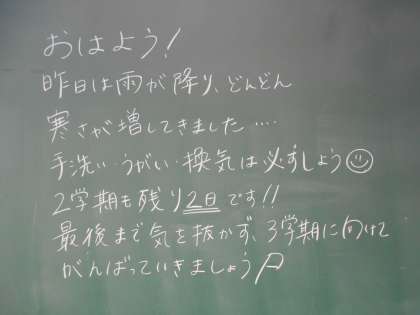 おはよう!
昨日は雨が降り、どんどん
寒さが増してきました....
手洗い・うがい・換気は必ずしましょう☺
2学期も残り2日です!!
最後まで気を抜かず、3学期に向けて
がんばっていきましょう